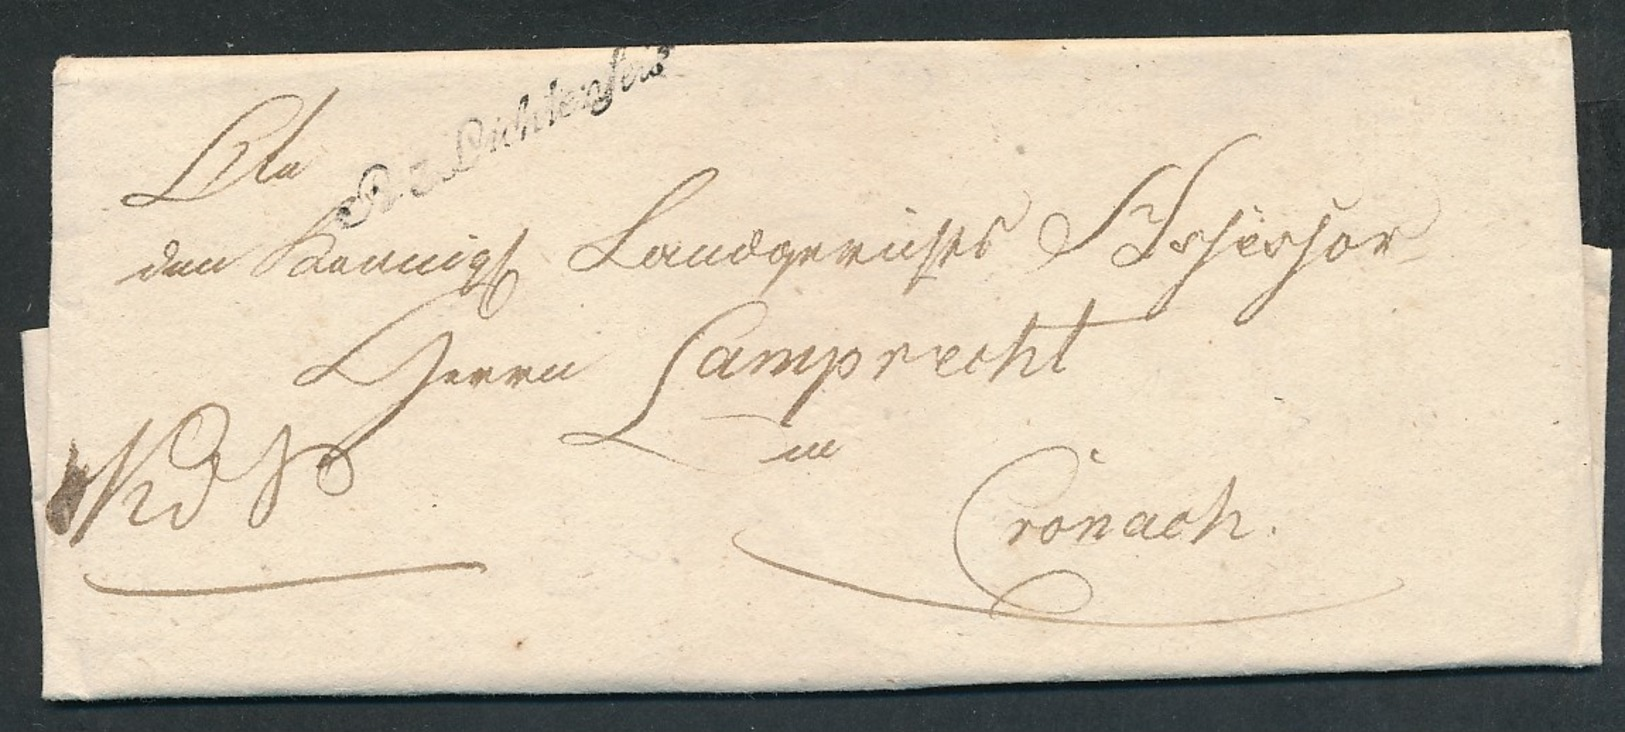 R. 3. Lichtenfels
An
den Koenigl Landgerichts Assessor
Herrn Lamprecht
in
Cronach.